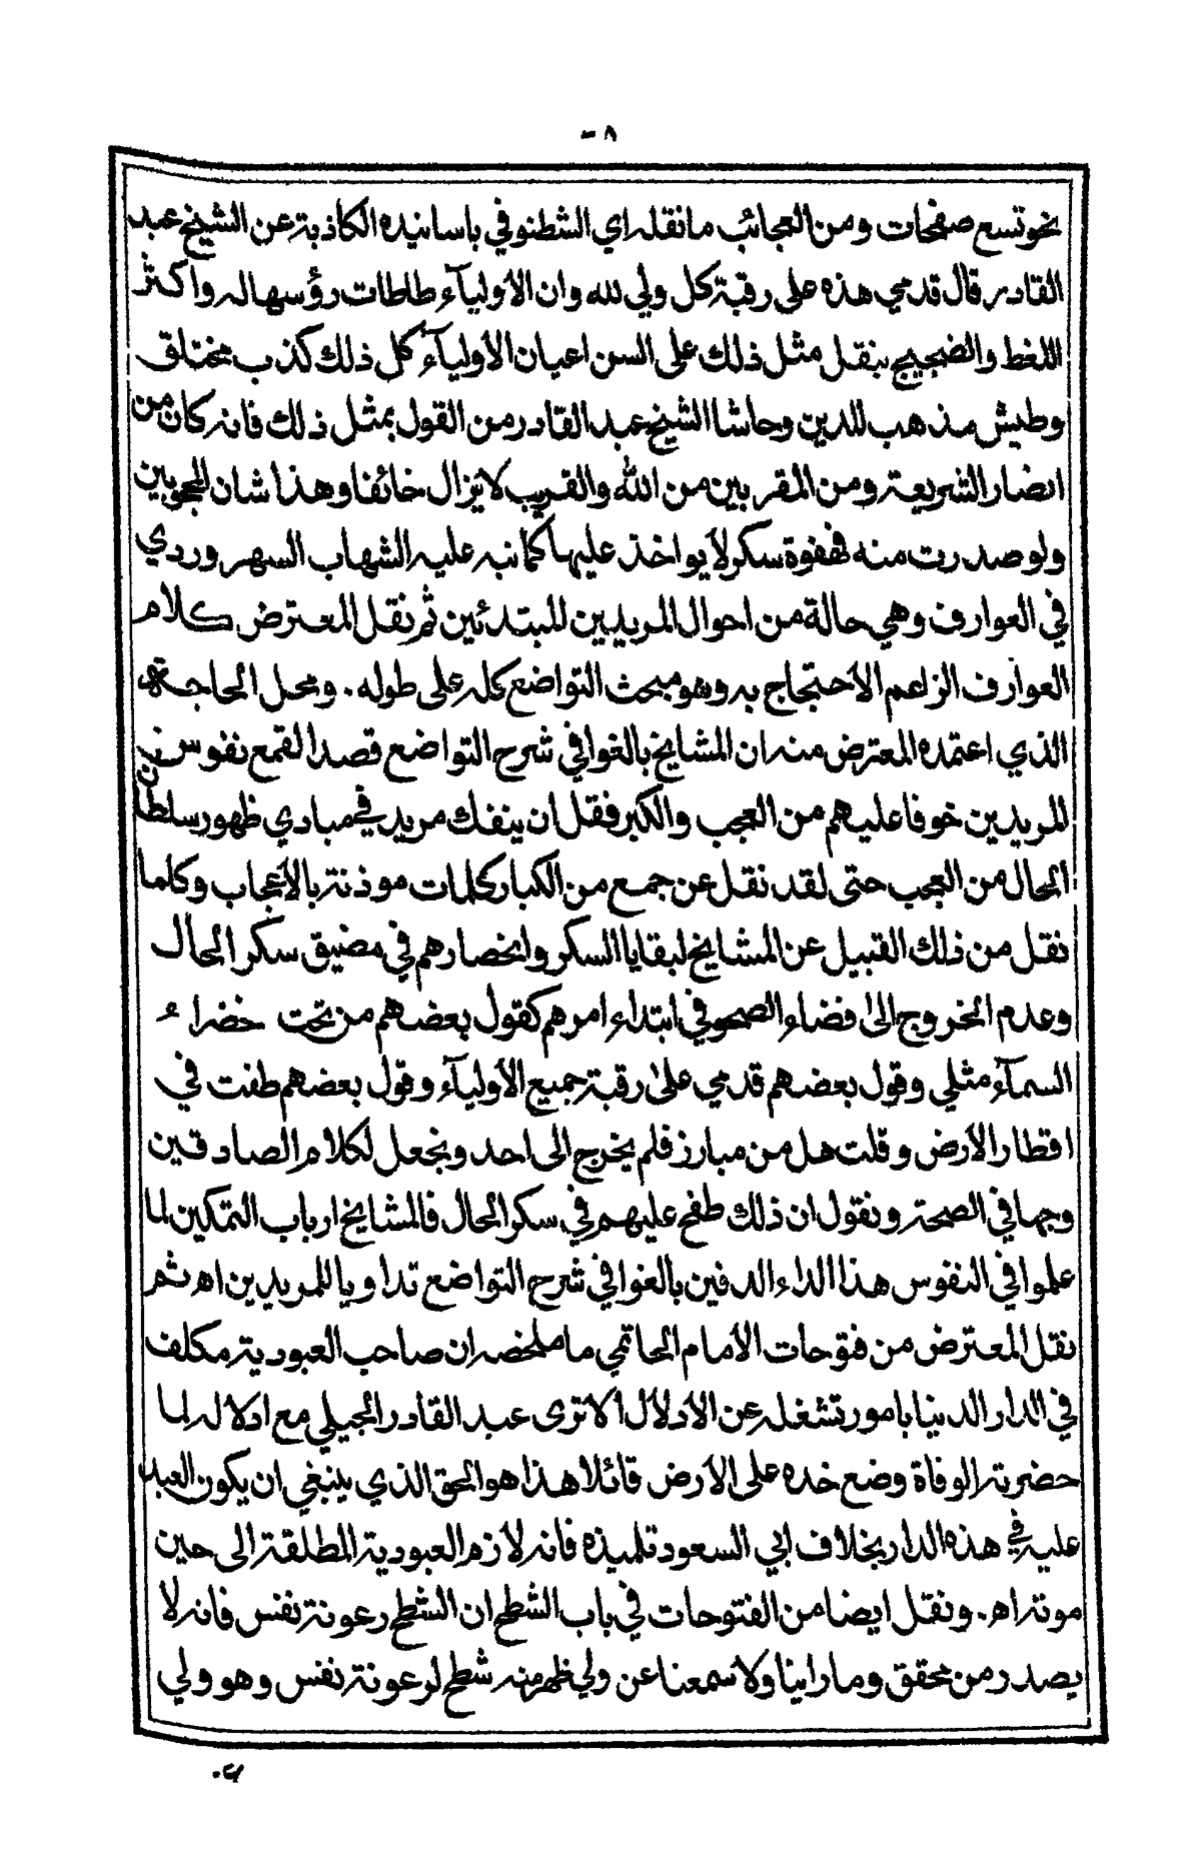 ٨ -
نحو تسع صفحات ومن العجائب ما نقله اي الشطنوفي باسانيده الكاذبة عن الشيخ عبد
القادر قال قدمي هذه على رقبة كل ولي لله وان الأوليآء طاطات رؤسها له واكثر
اللغط والضجيج بنقل مثل ذلك على السن اعيان الأوليآء كل ذلك كذب مختلق
وطيش مذهب للدين وحاشا الشيخ عبد القادر من القول بمثل ذلك فانه كان من
انصار الشريعة ومن المقربين من الله والقريب لا يزال خائفا وهذا شان المحبوبين
ولو صدرت منه فهفوة سكر لا يواخذ عليها كما نبه عليه الشهاب السهروردي
في العوارف وهي حالة من احوال المريدين المبتدئين ثم نقل المعترض كلام
العوارف الزاعم الأحتجاج به وهو مبحث التواضع كله على طوله . ومحل المحاجة
الذي اعتمده المعترض منه ان المشايخ بالغوا في شرح التواضع قصدا لقمع نفوس
المريدين خوفا عليهم من العجب والكبر فقل ان ينفك مريد في مبادي ظهور سلطان
الحال من العجب حتى لقد نقل عن جمع من الكبار كلمات موذنة بالأعجاب وكلما
نقل من ذلك القبيل عن المشايخ لبقايا السكر وانحصارهم في مضيق سكر الحال
وعدم الخروج الى فضاء الصحو في ابتداء امرهم كقول بعضهم من تحت خضراء
السمآء مثلي وقول بعضهم قدمي على رقبة جميع الأوليآء وقول بعضهم طفت في
اقطار الأرض وقلت هل من مبارز فلم يخرج الى احد ونجعل لكلام الصادقين
وجها في الصحة ونقول ان ذلك طفح عليهم في سكر الحال فالمشايخ ارباب التمكين لما
علموا في النفوس هذا الداء الدفين بالغوا في شرح التواضع تداويا للمريدين اه ثم
نقل المعترض من فتوحات الأمام الحاتمي ما ملخصه ان صاحب العبودية مكلف
في الدار الدنيا بامور تشغله عن الأدلال الا ترى عبد القادر الجيلي مع ادلاله لما
حضرته الوفاة وضع خده على الأرض قائلا هذا هو الحق الذي ينبغي ان يكون العبد
عليه في هذه الدار بخلاف ابي السعود تلميذه فانه لازم العبودية المطلقة الى حين
موته اه . ونقل ايضا من الفتوحات في باب الشطح ان الشطح رعونة نفس فانه لا
يصدر من محقق وما راينا ولا سمعنا عن ولي ظهر منه شطح لرعونة نفس وهو ولي